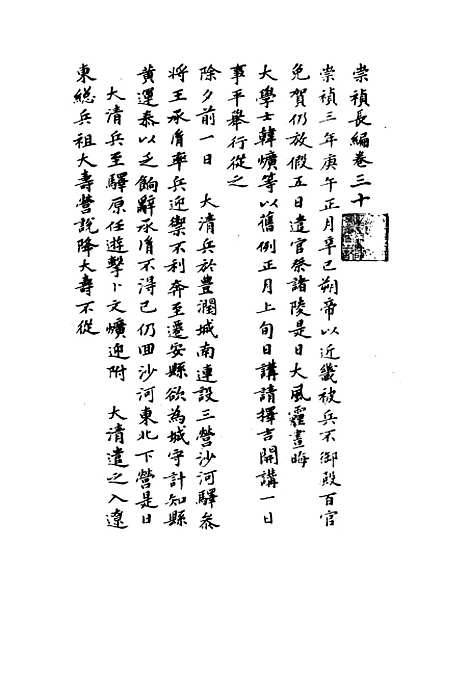 崇禎長編卷三十
崇禎三年庚午正月辛巳朔帝以近畿被兵不御殿百官
免賀仍放假五日遣官祭諸陵是日大風霾晝晦
大學士韓爌等以舊例正月上旬日講請擇吉開講一日
事平舉行從之
除夕前一日 大清兵於豐潤城南連設三營沙河驛叅
將王承胤率兵迎禦不利奔至遷安縣欲為城守計知縣
黃運泰以乏餉辭承胤不得已仍囬沙河東北下營是日
大清兵至驛原任遊擊卜文爌迎附 大清遣之入遼
東總兵祖大壽營說降大壽不從